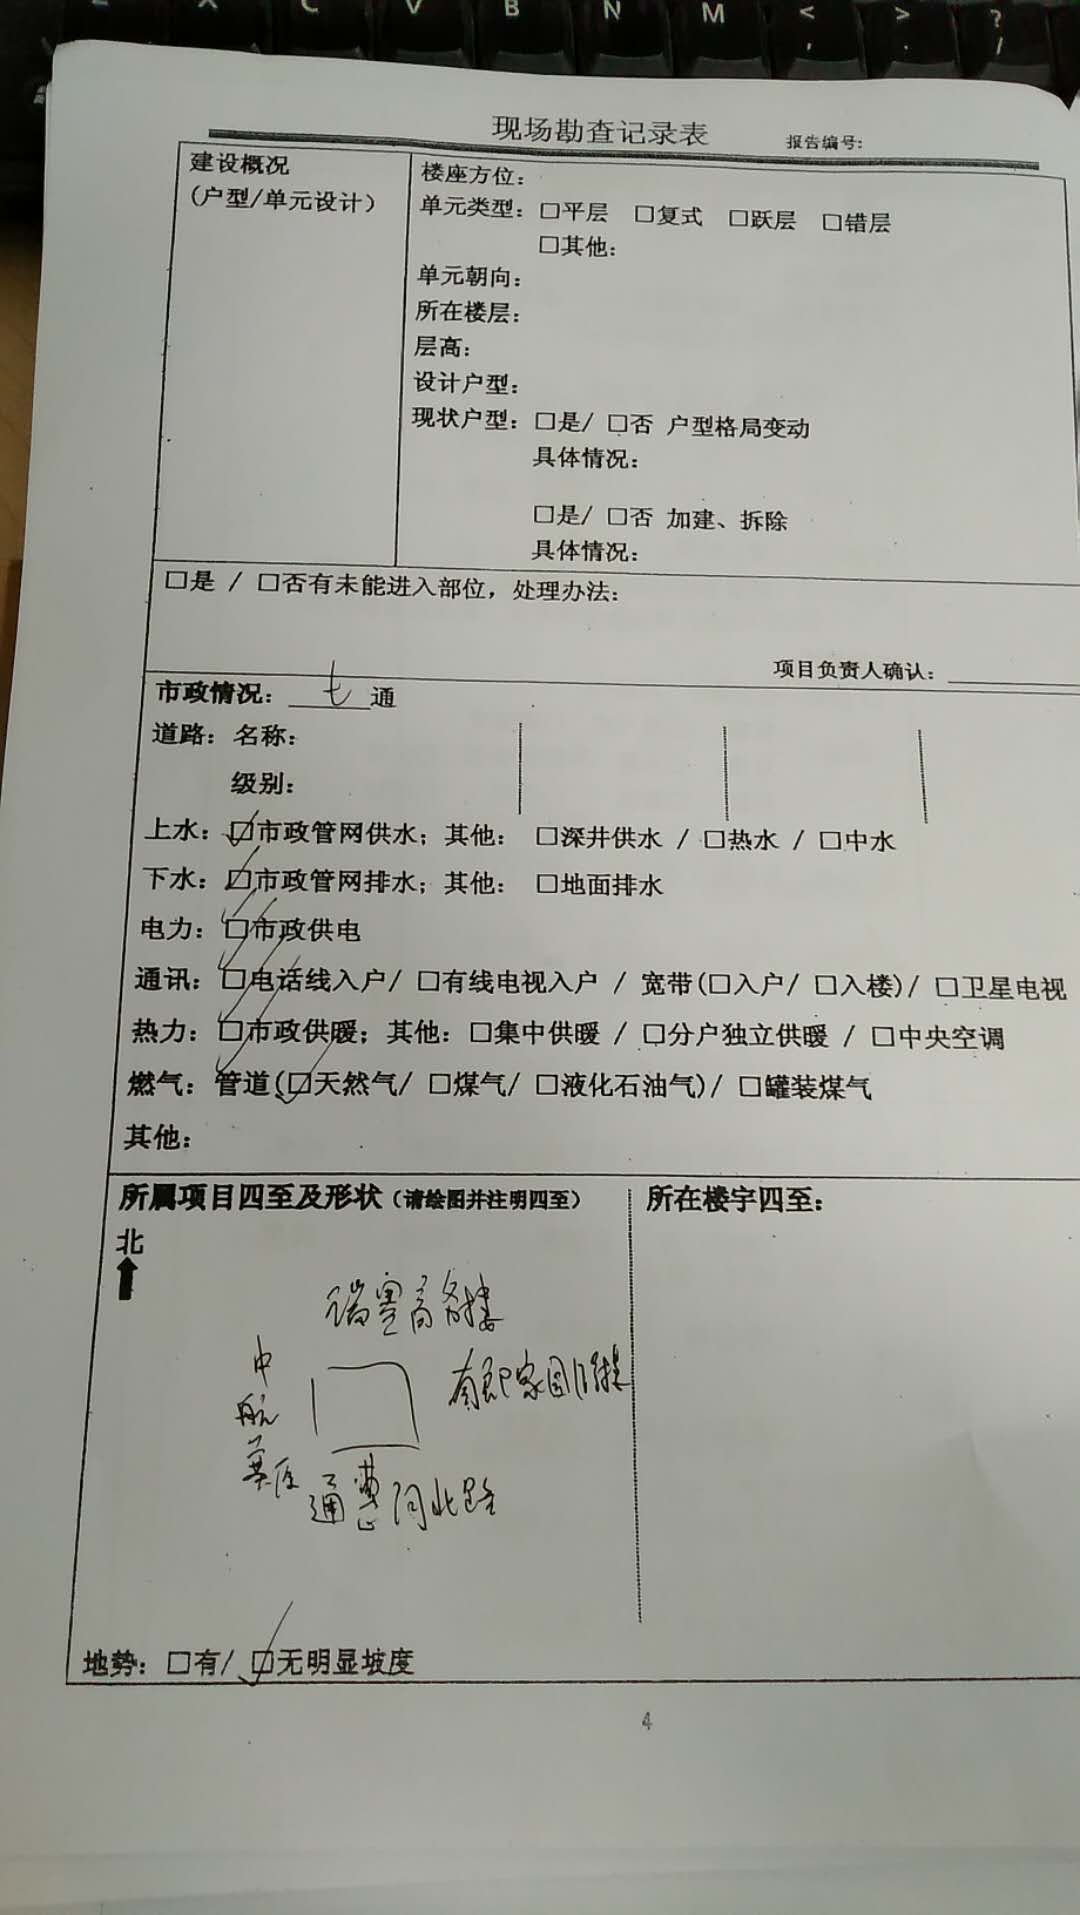 C V B N M < , > . ? /
现场勘查记录表 报告编号:
建设概况
(户型/单元设计)
楼座方位:
单元类型: □平层 □复式 □跃层 □错层
□其他:
单元朝向:
所在楼层:
层高:
设计户型:
现状户型: □是/ □否 户型格局变动
具体情况:
□是/ □否 加建、拆除
具体情况:
□是 / □否有未能进入部位, 处理办法:
项目负责人确认:
市政情况: 七 通
道路: 名称:
级别:
上水: ☑市政管网供水; 其他: □深井供水 / □热水 / □中水
下水: ☑市政管网排水; 其他: □地面排水
电力: ☑市政供电
通讯: ☑电话线入户/ □有线电视入户 / 宽带(□入户/ □入楼)/ □卫星电视
热力: ☑市政供暖; 其他: □集中供暖 / □分户独立供暖 / □中央空调
燃气: 管道(☑天然气/ □煤气/ □液化石油气)/ □罐装煤气
其他:
所属项目四至及形状(请绘图并注明四至)
所在楼宇四至:
北
瑞里商务楼
中
航
家园
通惠河北路
地势: □有/ ☑无明显坡度
4